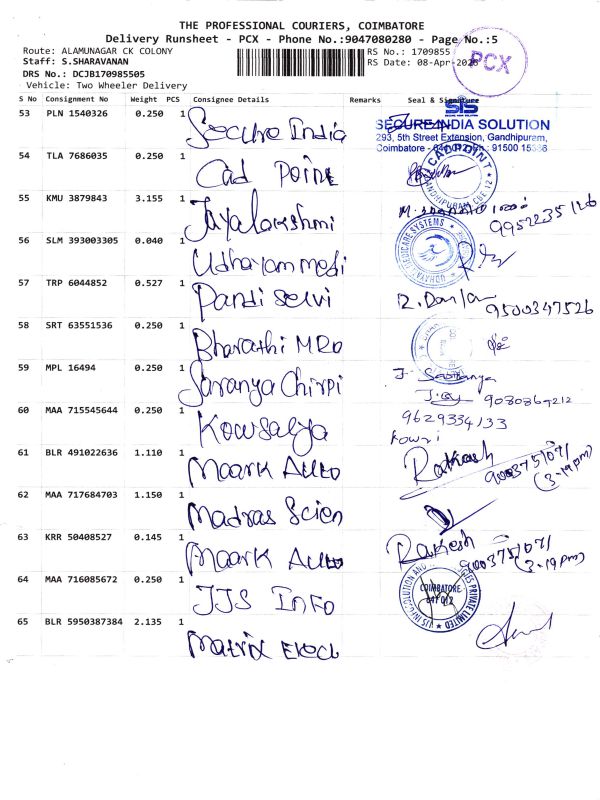 THE PROFESSIONAL COURIERS, COIMBATORE
Delivery Runsheet - PCX - Phone No.:9047080280 - Page No.:5
Route: ALAMUNAGAR CK COLONY
RS No.: 1709855
Staff: S.SHARAVANAN
RS Date: 08-Apr-2026
DRS No.: DCJB170985505
Vehicle: Two Wheeler Delivery
PCX
S No Consignment No Weight PCS Consignee Details Remarks Seal & Signature
53 PLN 1540326 0.250 1 Secure India
SIS
SECURE INDIA SOLUTION
293, 5th Street Extension, Gandhipuram,
Coimbatore
54 TLA 7686035 0.250 1 Cad Point
CADPOINT
GANDHIPURAM, CBE 12
55 KMU 3879843 3.155 1 Jayalakshmi
9952235126
56 SLM 393003305 0.040 1 Udhayam medi
57 TRP 6044852 0.527 1 Pandi Selvi
9500347526
58 SRT 63551536 0.250 1 Bharathi MRO
59 MPL 16494 0.250 1 Saranya Chirpi
60 MAA 715545644 0.250 1 Kowsalya
9629334133
Kowri
61 BLR 491022636 1.110 1 Maark Auto
9003751071
(3-19pm)
62 MAA 717684703 1.150 1 Madras Scien
63 KRR 50408527 0.145 1 Maark Auto
Rakesh 9003751071
(3-19pm)
64 MAA 716085672 0.250 1 JJS Info
COIMBATORE
65 BLR 5950387384 2.135 1 Matrix Elect